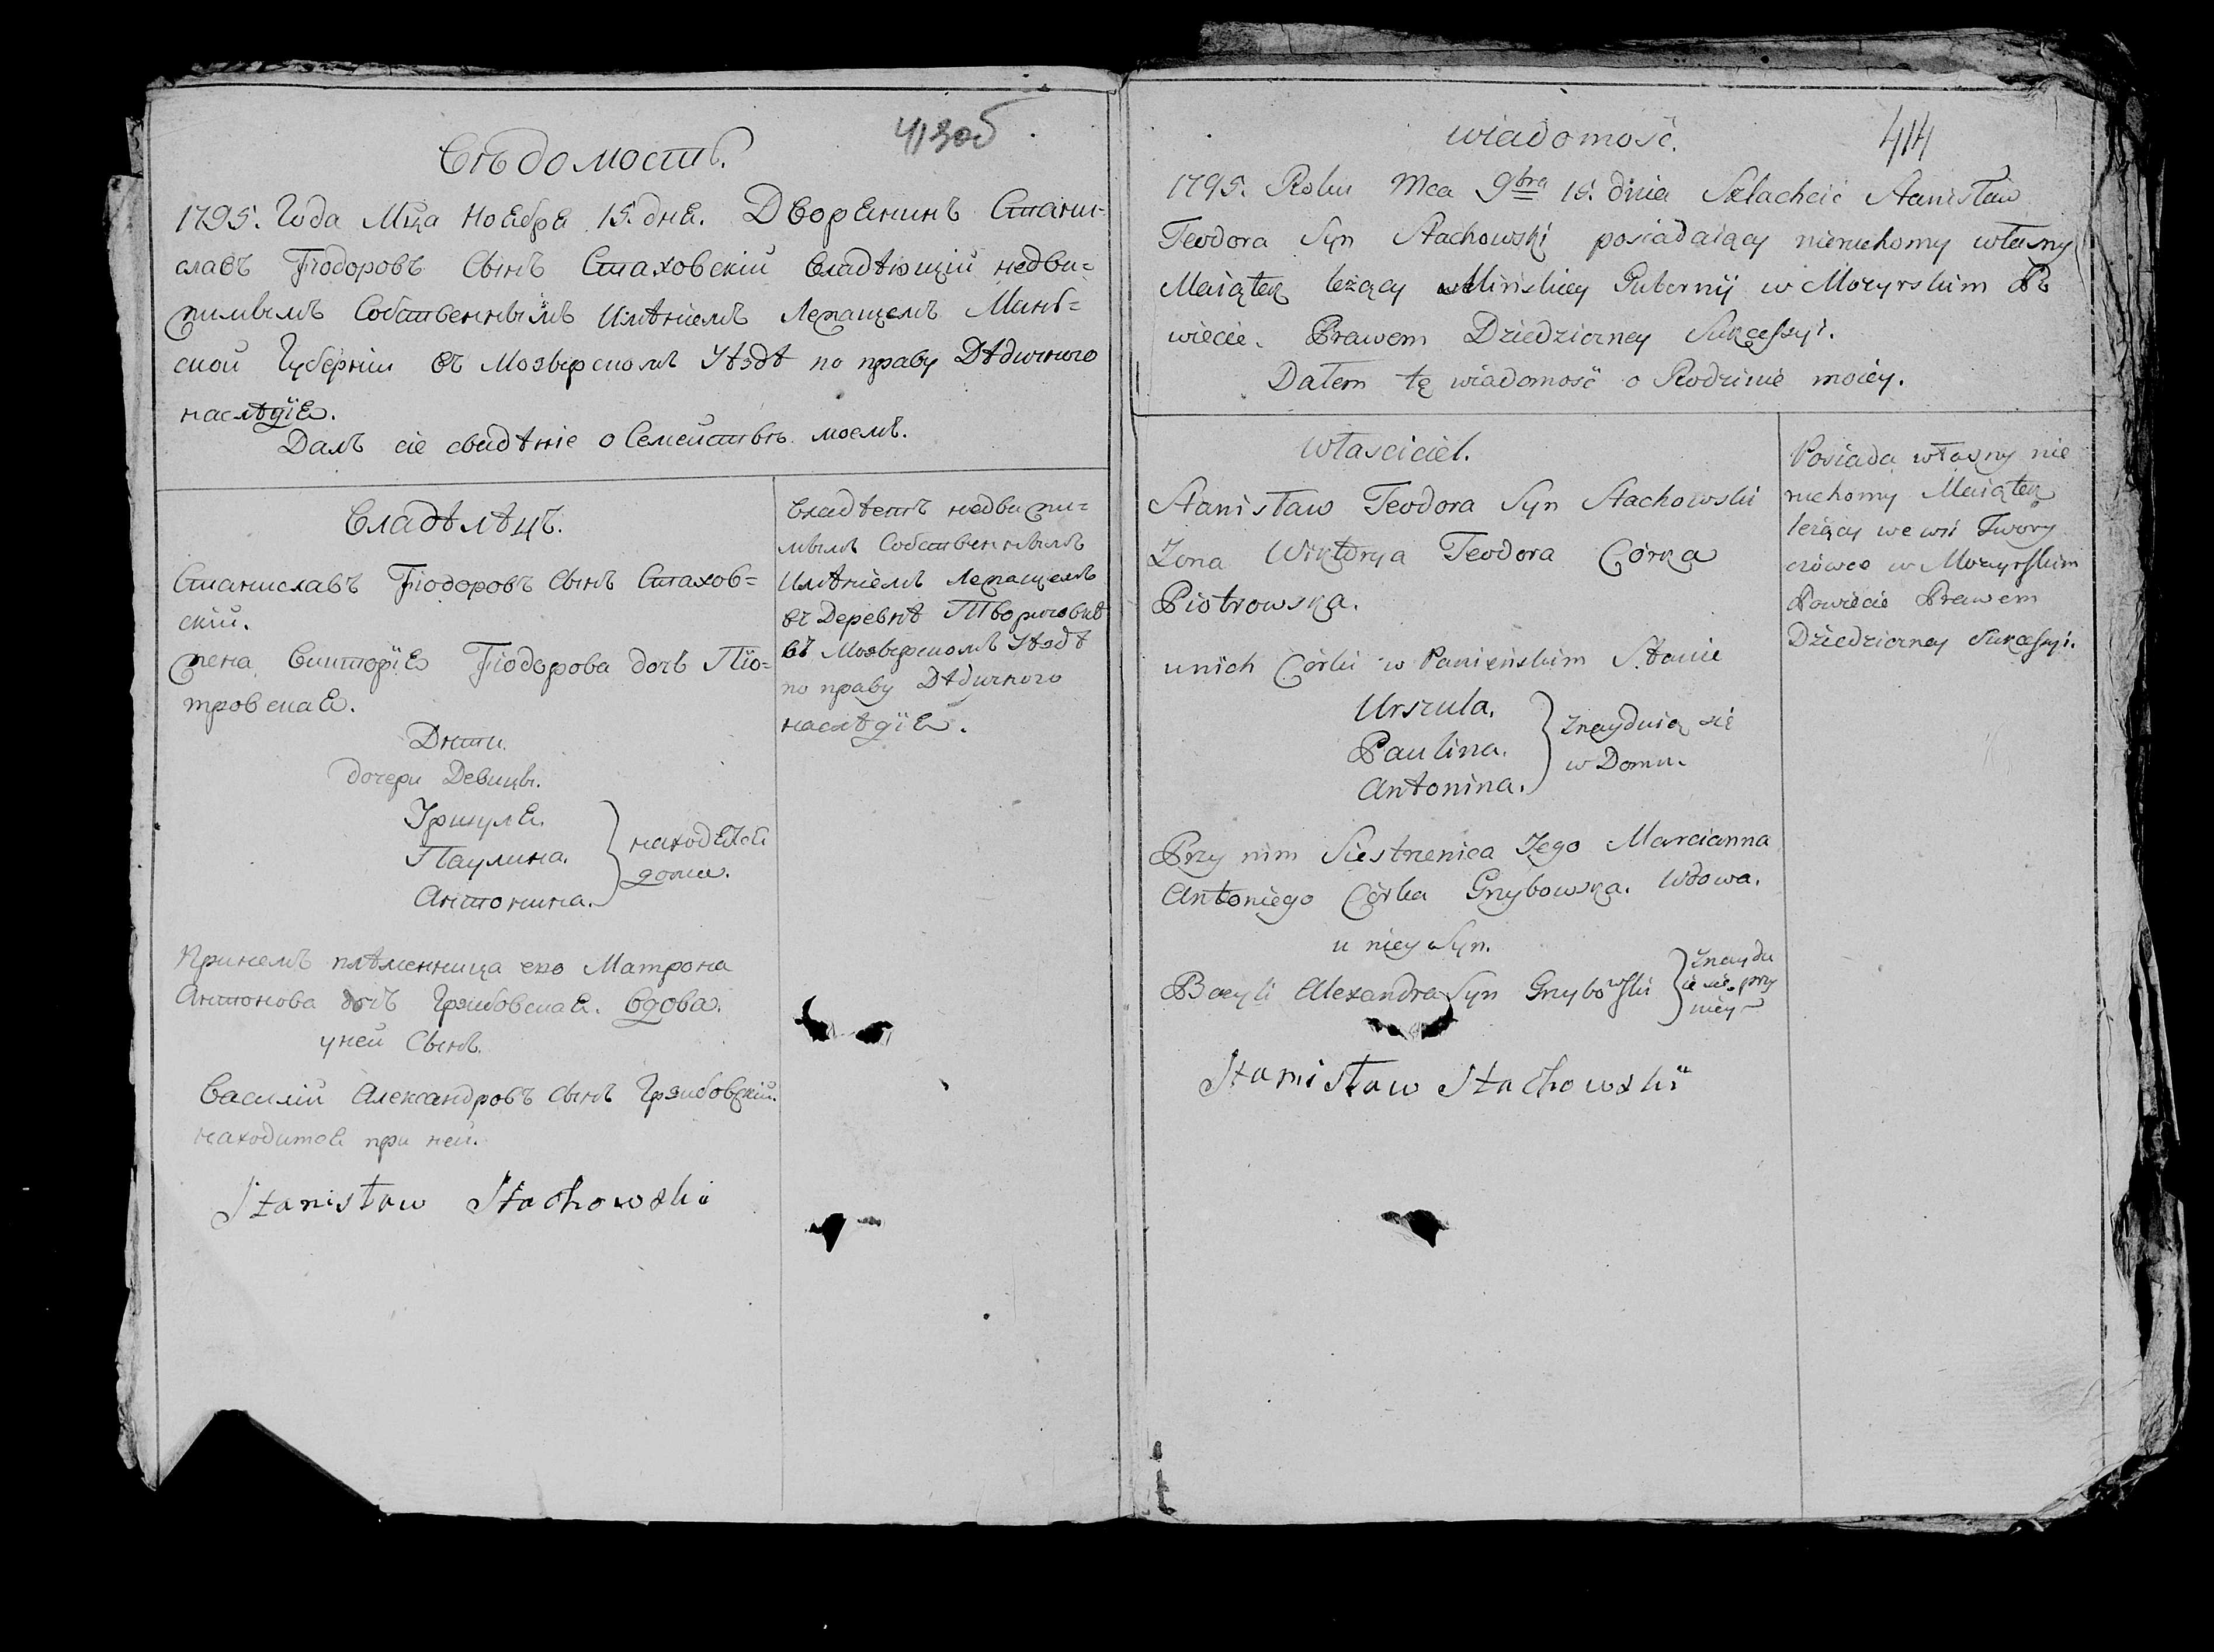 413об
Вѣдомость.
1795. Года Мца Ноября 15. дня. Дворянинъ Стани=
славъ Ѳіодоровъ Сынъ Стаховскій Владѣющій недви=
жимымъ Собственнымъ Имѣніемъ Лежащемъ Минь=
ской Губерніи въ Мозырскомъ Уѣздѣ по праву Дѣдичного
наслѣдїя.
Далъ сіе свидѣніе о Семействѣ моемъ.
Владѣлѣцъ.
Станиславъ Ѳіодоровъ Сынъ Стахов=
скій.
жена Викторїя Ѳіодорова дочь Піо=
тровская.
Дѣти.
дочери Девицы.
Уршуля.
Паулина.
Антонина.
находятся
дома.
Принемъ плѣменница его Матрона
Антонова дочь Грзибовская. вдова.
уней Сынъ.
Василій Александровъ Сынъ Грзибовскій.
находится при ней.
Stanisław Stachowski
Владѣетъ недвижи=
мымъ Собственнымъ
Имѣніемъ Лежащемъ
въ Деревнѣ Творичовкѣ
въ Мозырскомъ Уѣздѣ
по праву Дѣдичного
наслѣдїя.
414
wiadomość.
1795. Roku Mca 9bra 15. dnia Szlachcic Stanisław
Teodora Syn Stachowski posiadaiący nieruchomy własny
Maiątek leżący w Mińskiey Gubernij w Mozyrskim Po
wiecie. Prawem Dziedziczney Sukcessyi.
Dałem tę wiadomość o Rodzinie moiey.
Własciciel.
Stanisław Teodora Syn Stachowski
Zona Wiktorya Teodora Córka
Piotrowska.
unich Córki w Panieńskim Stanie
Urszula.
Paulina.
Antonina.
Znayduią się
w Domu.
Przy nim Siestrzenica Jego Marcianna
Antoniego Córka Grzybowska. Wdowa.
u niey Syn.
Bazyli Alexandra Syn Grzybowski
Znaydu
ie się przy
niey
Stanisław Stachowski
Posiada własny nie
ruchomy Maiątek
leżący we wsi Twory
czówce w Mozyrskim
Powiecie Prawem
Dziedziczney Sukcessyi.